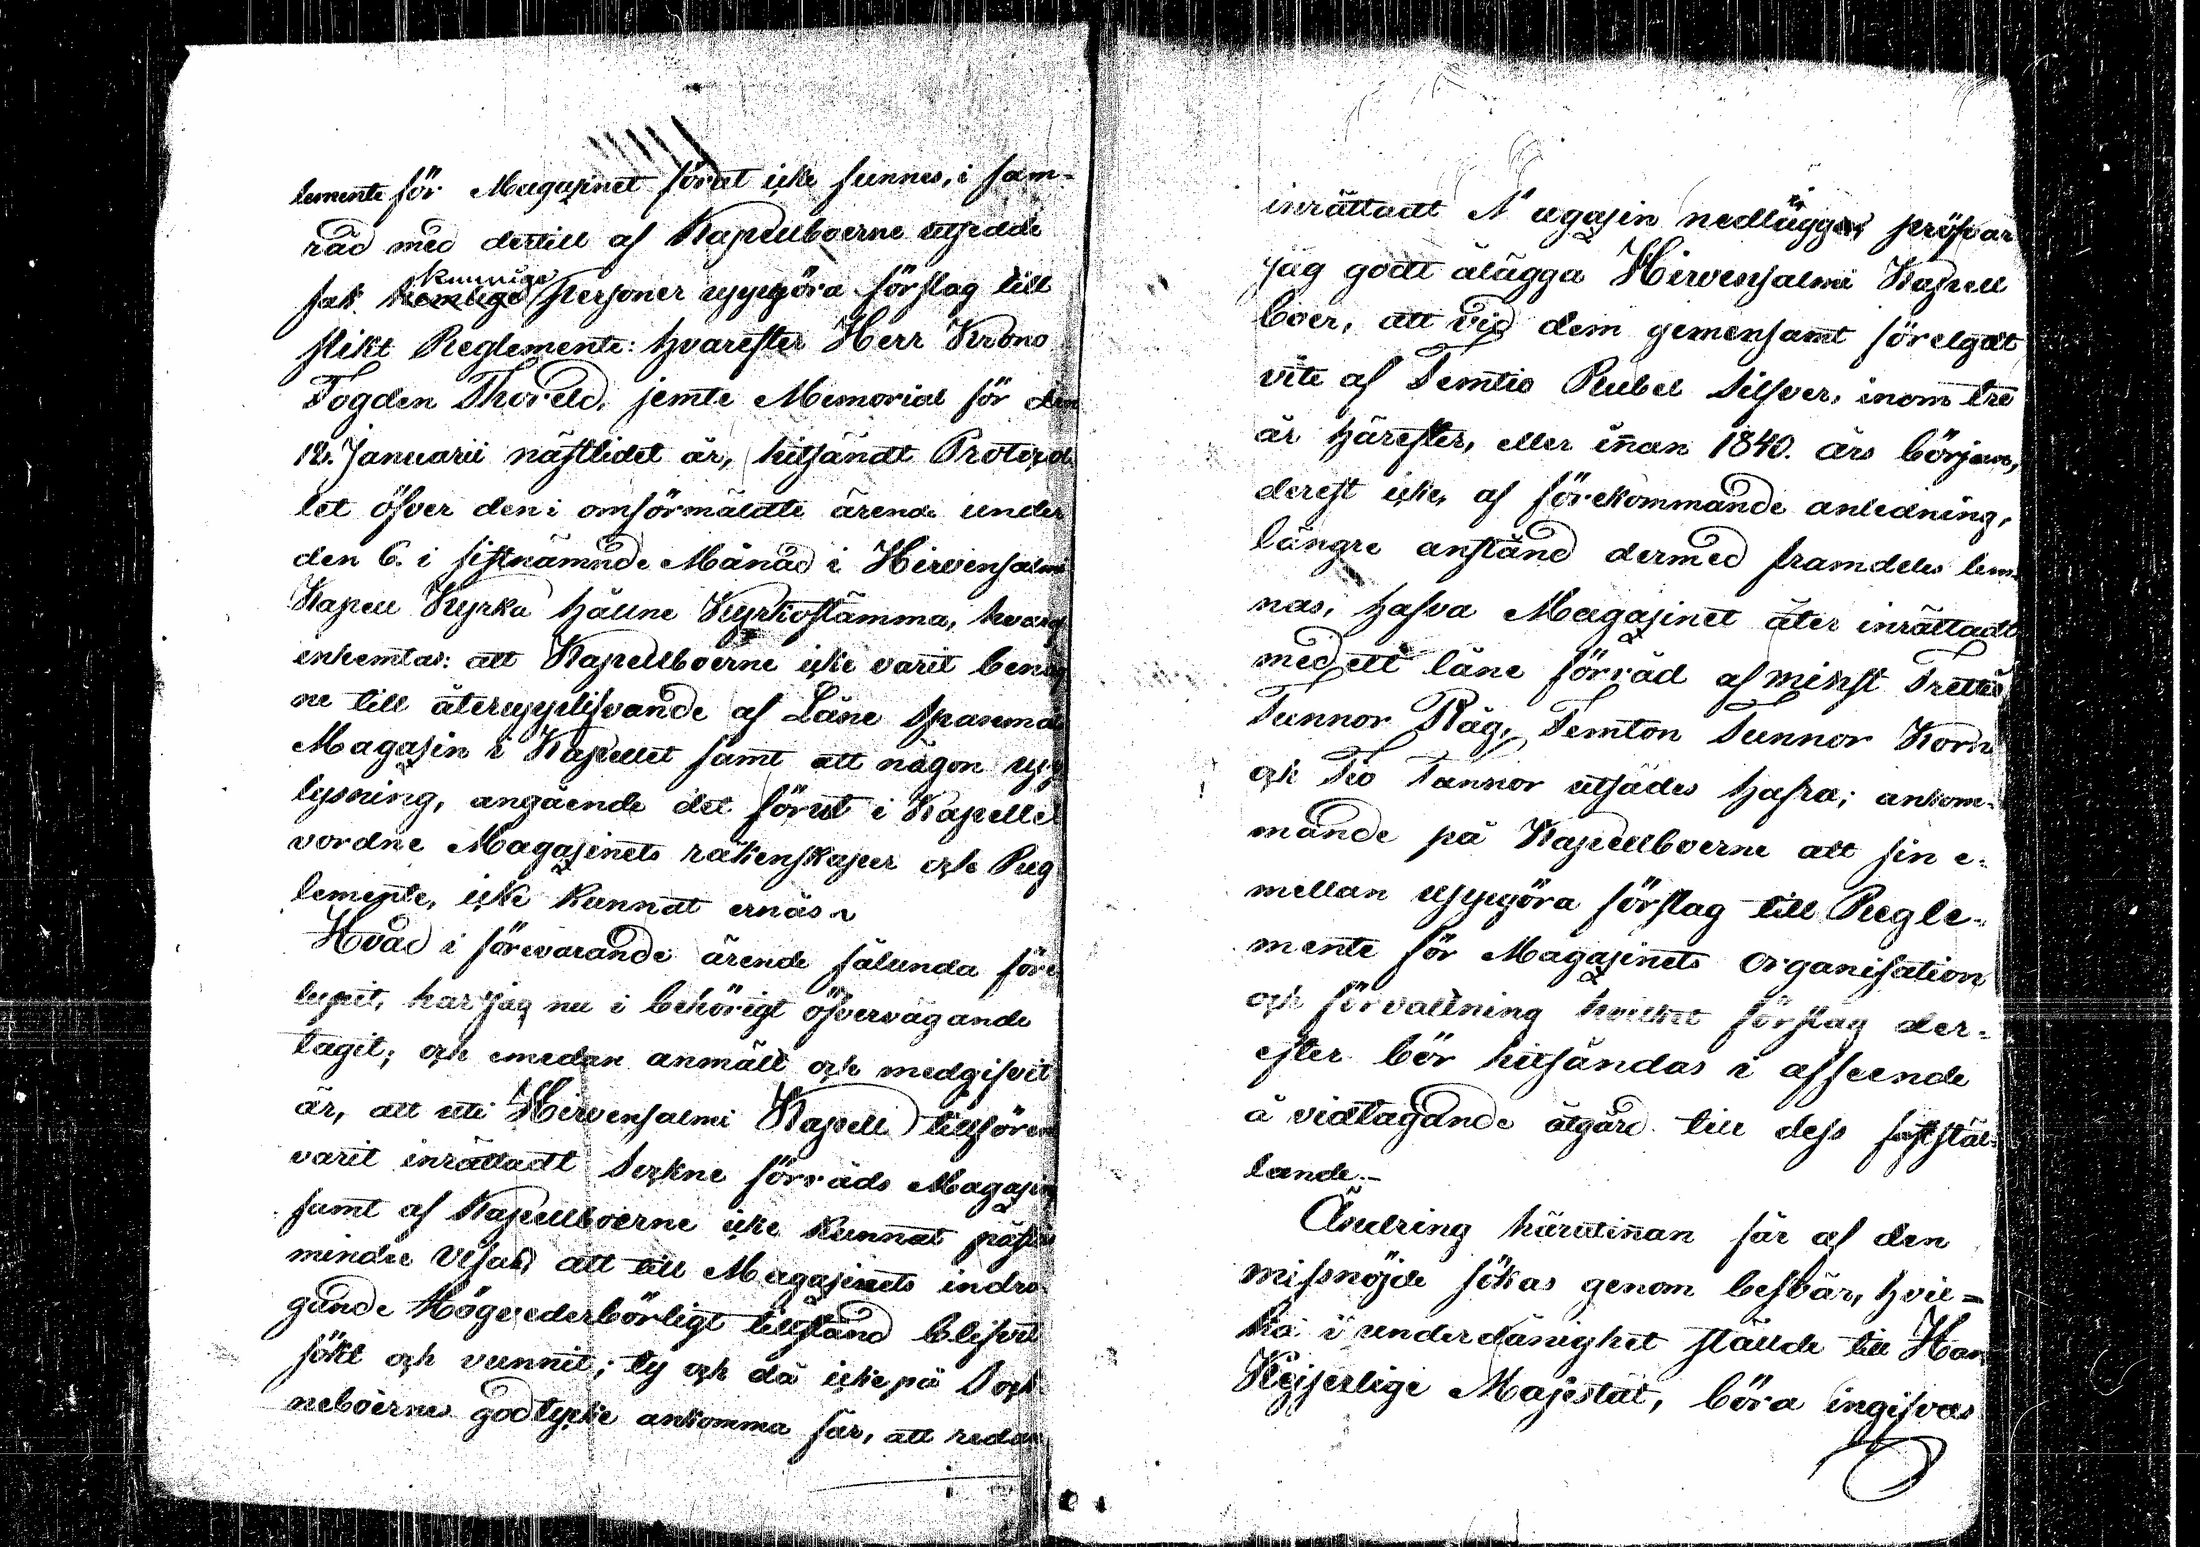 lemente för Magazinet förut icke funnes, i sam-
råd med dertill af Kapellboerne utsedde
sak kunnige personer uppgöra förslag till
slikt Reglemente: hvarefter Herr Krono
Fogden Thoreld, jemte Memorial för den
12. Januarii nästlidet år, hitsändt Protocol
let öfver den i omförmäldte ärende under
den 6. i sistnämnde Månad i Hirvensalmi
Kapell Kyrka hållne Kyrkostämma, hvaraf
inhemtas: att Kapellboerne icke varit benäg
ne till återupplifvande af Låne Spanmåls
Magazin i Kapellet samt att någon upp
lysning, angående det förut i Kapellet
vordne Magazinets räkenskaper och Reg
lemente, icke kunnat ernås.
Hvad i förevarande ärende sålunda före
lupit, har jag nu i behörigt öfvervägande
tagit; och emedan anmält och medgifvit
är, att uti Hirvensalmi Kapell tillförene
varit inrättadt Sockne förråds Magazin
samt af Kapellboerne icke kunnat påstås
mindre visas att till Magazinets indra
gande Högvederbörligt tillstånd blifvit
sökt och vunnit; ty och då icke på Sock
neboernes godtycke ankomma får, att redan
inrättadt Magazin nedlägga, pröfvar
jag godt ålägga Hirvensalmi Kapell
boer, att vid dem gemensamt förelagdt
vite af Femtio Rubel Silfver, inom tre
år härefter, eller innan 1840. års början,
derest icke, af förekommande anledning,
längre anstånd dermed framdeles lem-
nas, hafva Magazinet åter inrättadt
med ett låne förråd af minst Trettio
Tunnor Råg, Femton Tunnor Korn
och Tio Tunnor utsädes hafra; ankom-
mande på Kapellboerne att sin e-
mellan uppgöra förslag till Regle-
mente för Magazinets organisation
och förvaltning hvilket förslag der-
efter bör hitsändas i afseende
å vidtagande åtgärd till dess faststäl-
lande.-
Ändring härutinnan får af den
missnöjde sökas genom besvär, hvil=
ka i underdånighet ställde till Hans
Kejserlige Majestät, böra ingifvas